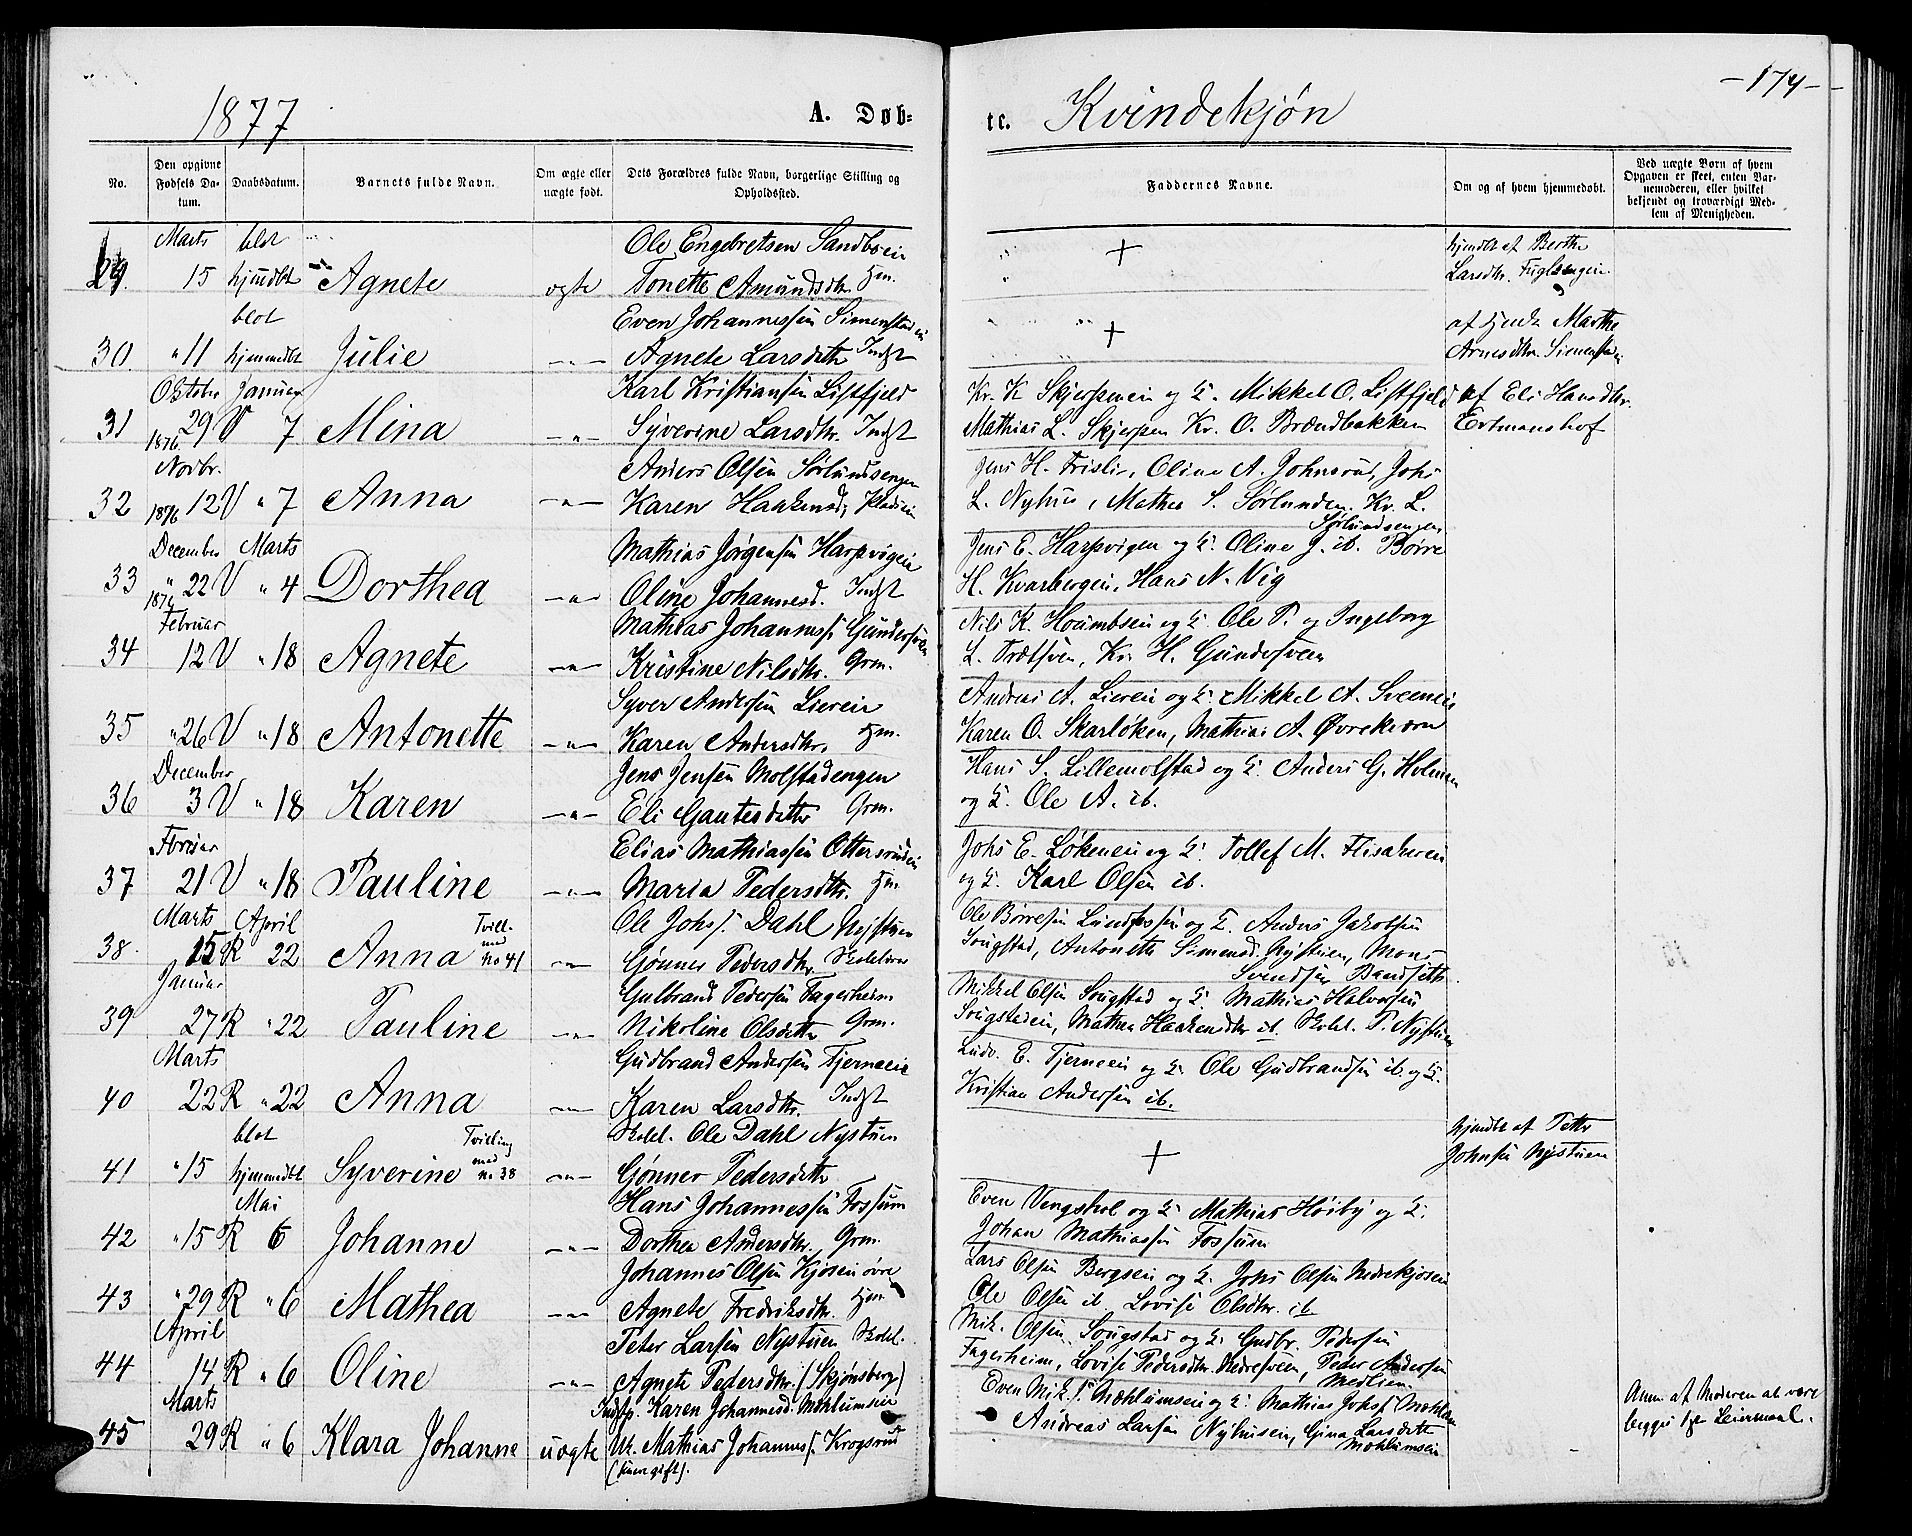 1877
A. Døb-
te.
Kvindekjøn
-174-
No.
Den opgivne Fødsels Datum.
Daabsdatum.
Barnets fulde Navn.
Om ægte eller uægte født.
Dets Forældres fulde Navn, borgerlige Stilling og Opholdssted.
Faddernes Navne.
Om og af hvem hjemmedøbt.
Ved uægte Børn af hvem Opgaven er skeet, enten Barnemoderen, eller hvilket bekjendt og troværdigt Medlem af Menigheden.
Marts blot Ole Engebretsen hjmdbt af Berthe
29. 15 hjmdbt Agnete ægte Tonette Amundsdtr. Hjm. Larsdtr.
blot Even Johannessen + Marthe
30. " 11 hjemmedbt Julie -"- Agnete Larsdatter Indst Arnesdtr.
Oktober Januar Karl Kristiansen Listfjeld Mikkel O. Listfjeld af Eli Hansdtr.
31 1876 29 V 7 Mina -"- Syverine Larsdtr. Indst Mathias L. Skjerpen Kr. O. Brændbakken Ertmanshof
Novbr. Anders Olsen Sørlundsengen Jens H. Trisli, Oline A. Johnsrud, Johs
32 1876 12 V " 7 Anna -"- Karen Haakensd. L. Nyhus, Mathea S. Sørlunden. Kr. L.
Sørlundsengen,
December Marts Mathias Jørgensen Harpvigen Jens E. Harpvigen og H. Oline J. ib. Børre
33 " 1876 22 V " 4 Dorthea -"- Oline Johannesd. Indst H. Kvarbergen, Hans N. Vig
Februar Mathias Johanness. Nils K. og H. Ole P. og Ingeborg
34 12 V " 18 Agnete -"- Kristine Nilsdtr. Grm. L. Kr. H. Gundersveen
Syver Andersen Liereie Andreas A. Liereie og H. Mikkel A.
35 " 26 V " 18 Antonette -"- Karen Andersdtr. Hjm. Karen O. Skarløken, Mathias A. Øvrekvern
December Jens Jensen Molstadengen Hans S. Lillemolstad og H. Anders G. Holmen
36 3 V " 18 Karen -"- Eli Gautesdatter Grm. og H. Ole A. ib.
Elias Mathiassen Johs E. Løkeneie og H. Tollef M.
37 21 V " 18 Pauline -"- Maria Pedersdtr. Hjm og H. Karl Olsen ib.
Marts April Tvill. Ole Johs. Dahl Nystuen Ole Børresen og H. Anders Jakobsen
38. 15 R 22 Anna med No 41 -"- Gønner Pedersdtr. Sougstad, Antonette Simensd. Nystuen, Mons
Svendsen
Januar Gulbrand Pedersen Fagerheim Mikkel Olsen Sougstad og H. Mathias Halvorsen
39 27 R " 22 Pauline -"- Nikoline Olsdatter Grm. Sougstadeie, Mathea Haakensdtr ib. P. Nystuen
Marts Gudbrand Andersen Tjerneeie Ludv. E. Tjerneeie og H. Ole Gudbrandsen ib. og H.
40 22 R " 22 Anna -"- Karen Larsdtr. Indst Kristian Andersen ib.
blot Tvilling Ole Dahl Nystuen hjmdbt af Petter
41 " 15 hjemmedbt Syverine med No 38 -"- Gønner Pedersdatter + Johnsen Nystuen
Mai Hans Johannessen Fossum Even Vengshol og H. Mathias Høiby og H.
42 " 15 R 6 Johanne -"- Dorthea Andersdtr. Grm. Johan Mathiassen Fossum
Johannes Olsen Kjoseie øvre Lars Olsen Bergseie og H. Johs Olsen Nedrekjoseie
43 " 29 R " 6 Mathea -"- Agnete Fredriksdtr. Hjm Ole Olsen ib Lovise Olsdtr. ib
April Peter Larsen Nystuen Mik. Olsen Sougstad og H. Gudbr. Pedersen
44 14 R " 6 Oline -"- Agnete Pedersdtr. (Skjønsberg) Fagerheim, Lovise Pedersdtr. Nedresveen, Peder Andersen
Medlien.
Marts Karen Johannesd. Mohlumseie Even Mik.s. Mohlumseie og H. Mathias Johs. Mohlum Anm. af Moderen at være
45 29 R " 6 Klara Johanne uægte Mathias Johanness. Krogsrud Andreas Larsen Nyhuseie, Gina Larsdatter begges 1ste Leiermaal.
Mohlumseie